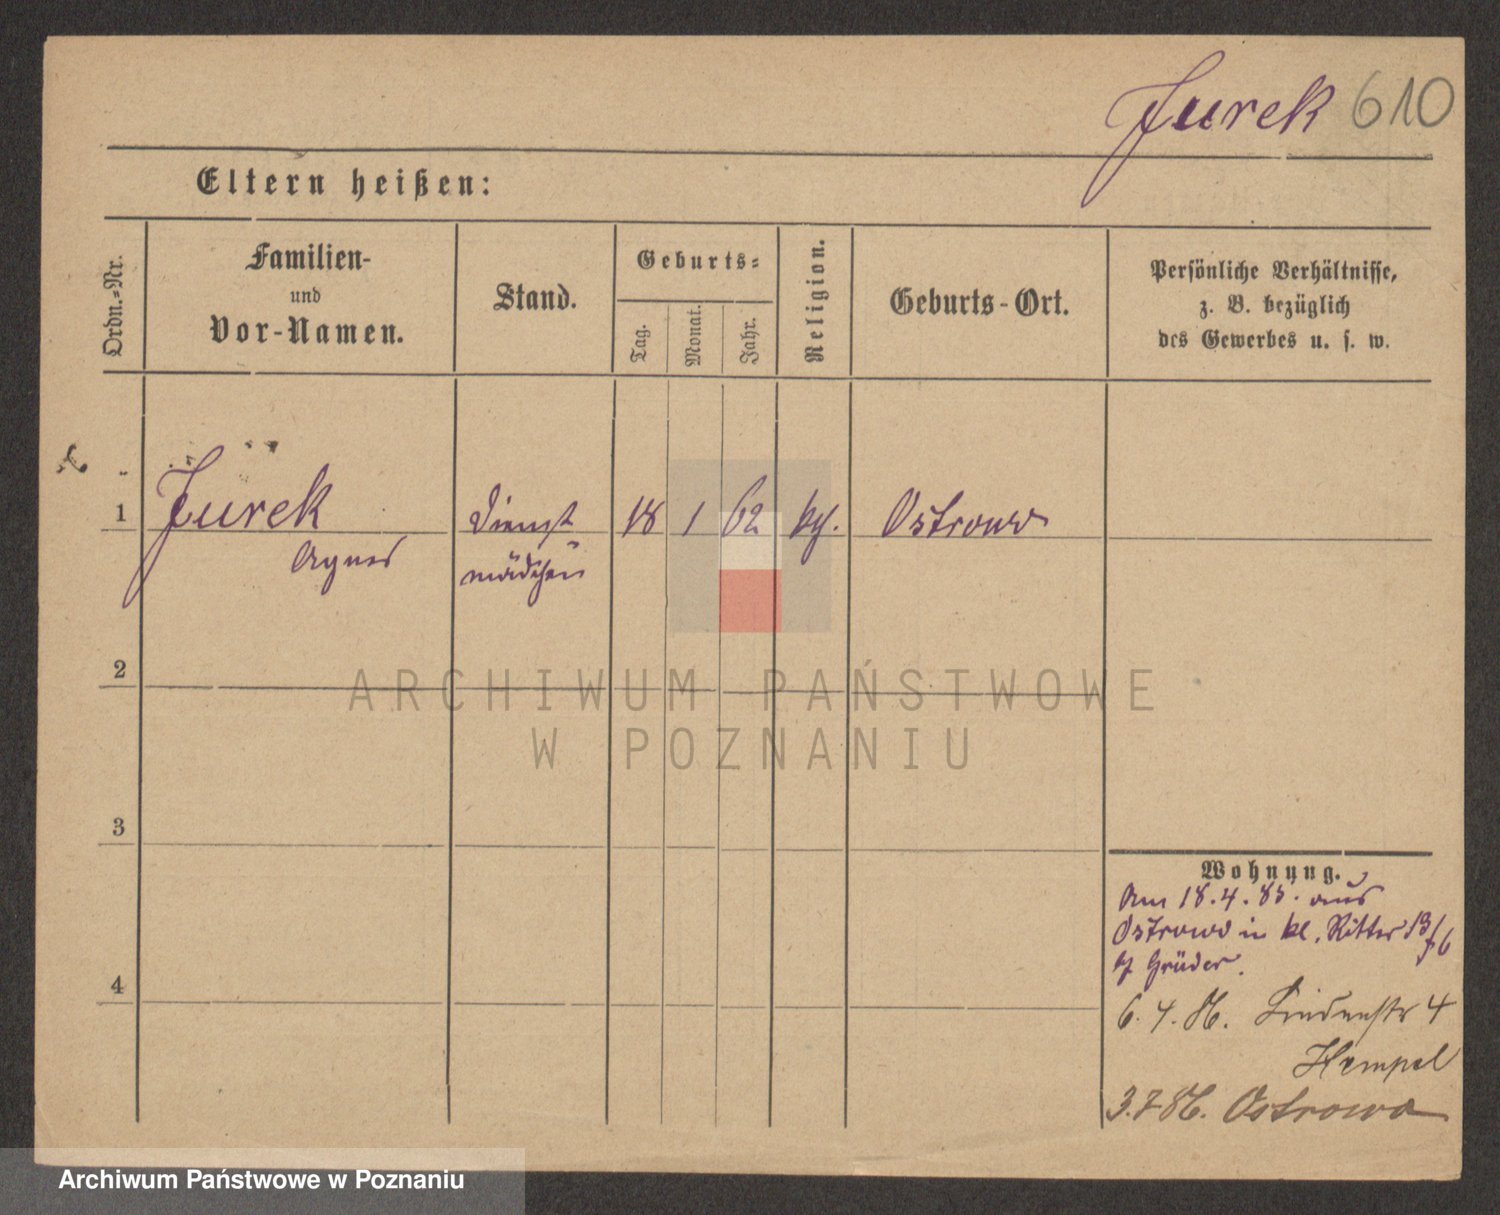 Jurek 610
Eltern heißen:
Ordn.=Nr.
Familien-
und
Vor-Namen.
Stand.
Geburts=
Tag.
Monat.
Jahr.
Religion.
Geburts-Ort.
Persönliche Verhältnisse,
z. B. bezüglich
des Gewerbes u. s. w.
1 Jurek Dienst 18 1 62 kth. Ostrowo
Agnes mädchen
2
ARCHIWUM PAŃSTWOWE
W POZNANIU
3
4
Wohnung.
Am 18.4.85. aus
Ostrowo in kl. Ritter 13/
b/ Grüder.
6. 4. 86. Lindenstr 4
Hempel
3.7 86. Ostrowo
Archiwum Państwowe w Poznaniu